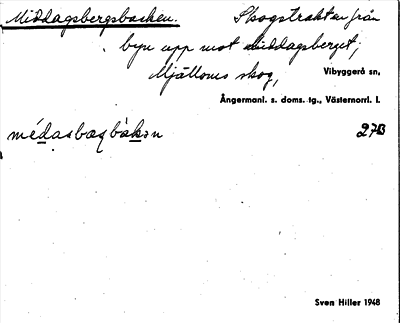 Middagsbergsbacken. Skogstrakten från
byn upp mot middagsberget;
Mjälloms skog,
Vibyggerå sn,
Ångermanl. s. doms. tg., Västernorrl. l.
médasbaqbàkən 27B
Sven Hiller 1948